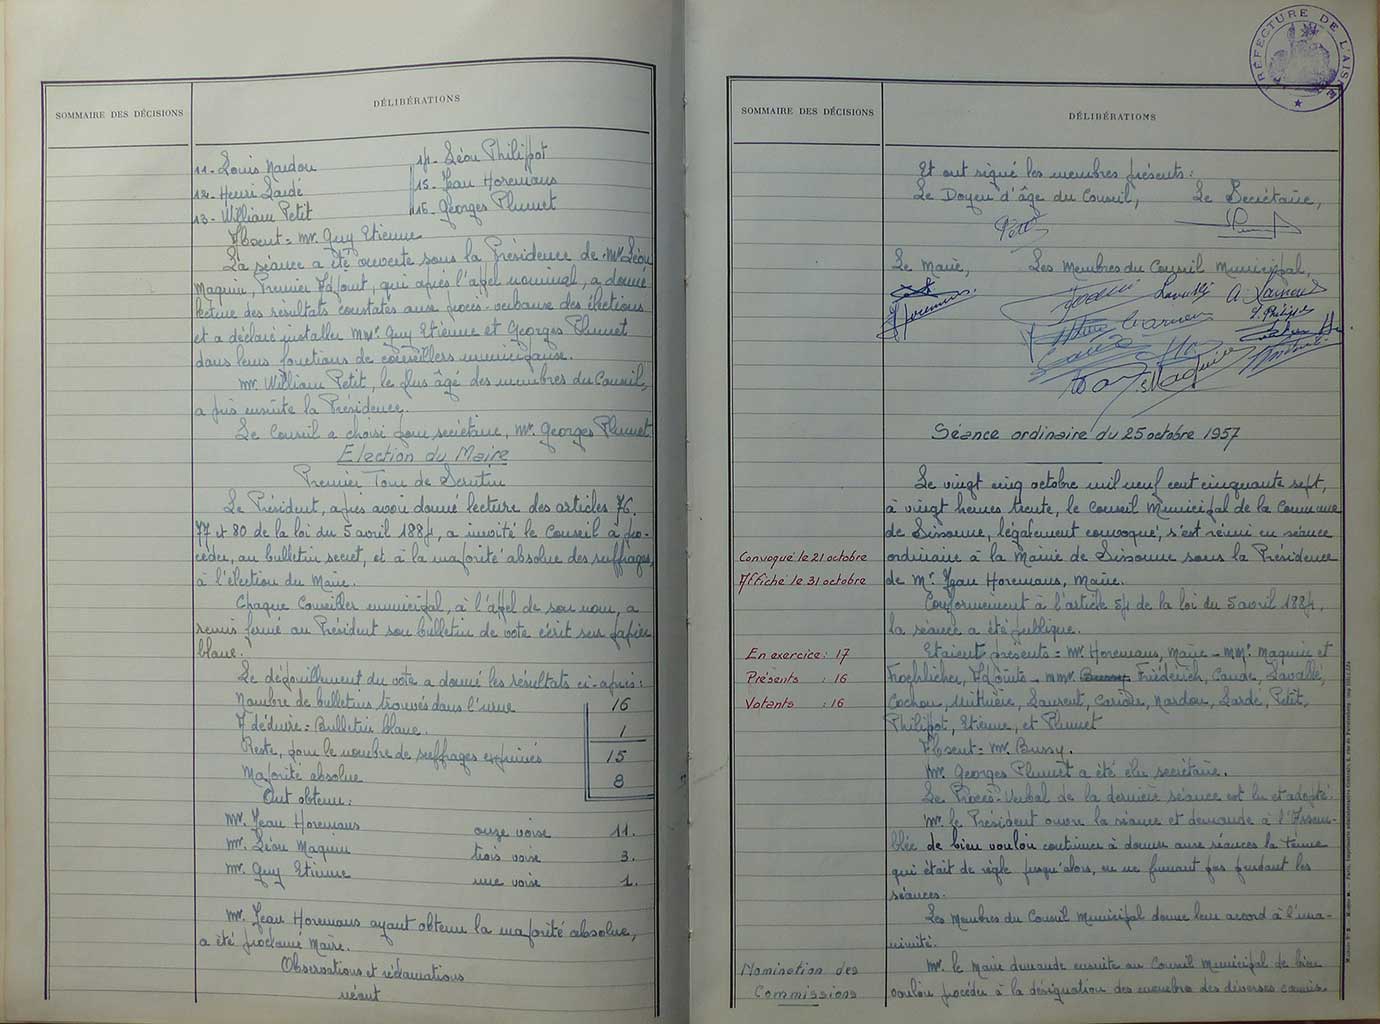 SOMMAIRE DES DÉCISIONS
DÉLIBÉRATIONS
11- Louis Nardon
12- Henri Lardé
13- William Petit
14- Léon Philippot
15- Jean Horemans
16- Georges Plumet
Absent = Mr. Guy Etienne
La séance a été ouverte sous la Présidence de Mr Léon
Maquin, Premier Adjoint, qui après l'appel nominal, a donné
lecture des résultats constatés aux procès-verbaux des élections
et a déclaré installer MMrs Guy Etienne et Georges Plumet
dans leurs fonctions de conseillers municipaux.
Mr. William Petit, le plus âgé des membres du Conseil,
a pris ensuite la Présidence.
Le Conseil a choisi pour secrétaire, Mr. Georges Plumet
Election du Maire
Premier Tour de Scrutin
Le Président, après avoir donné lecture des articles 76.
77 et 80 de la loi du 5 avril 1884, a invité le Conseil à pro-
céder, au bulletin secret, et à la majorité absolue des suffrages,
à l'élection du Maire.
Chaque Conseiller municipal, à l'appel de son nom, a
remis fermé au Président son bulletin de vote écrit sur papier
blanc.
Le dépouillement du vote a donné les résultats ci-après:
Nombre de bulletins trouvés dans l'urne 16
A déduire = Bulletin blanc. 1
Reste, pour le nombre de suffrages exprimés 15
Majorité absolue 8
Ont obtenu:
Mr. Jean Horemans onze voix 11.
Mr. Léon Maquin trois voix 3.
Mr. Guy Etienne une voix 1.
Mr. Jean Horemans ayant obtenu la majorité absolue,
a été proclamé Maire.
Observations et réclamations
néant
PRÉFECTURE DE L'AISNE
SOMMAIRE DES DÉCISIONS
DÉLIBÉRATIONS
Et ont signé les membres présents:
Le Doyen d'âge du Conseil, Le Secrétaire,
Petit
Le Maire, Les Membres du Conseil Municipal,
Horemans
Séance ordinaire du 25 octobre 1957
Le vingt cinq octobre mil neuf cent cinquante sept,
à vingt heures trente, le Conseil Municipal de la Commune
de Sissonne, légalement convoqué, s'est réuni en séance
Convoqué le 21 octobre
ordinaire à la Mairie de Sissonne sous la Présidence
Affiché le 31 octobre
de Mr. Jean Horemans, Maire.
Conformément à l'article 54 de la loi du 5 avril 1884,
la séance a été publique.
En exercice: 17
Etaient présents = Mr. Horemans, Maire - MMrs. Maquin et
Présents : 16
Froehlicher, Adjoints - MMrs. Bussy Fréderich, Caude, Lavallé,
Votants : 16
Cochon, Laurent, Carion, Nardon, Lardé, Petit,
Philippot, Etienne, et Plumet
Absent = Mr. Bussy.
Mr. Georges Plumet a été élu secrétaire.
Le Procès-Verbal de la dernière séance est lu et adopté.
Mr. le Président ouvre la séance et demande à l'Assem-
blée de bien vouloir continuer à donner aux séances la tenue
qui était de règle jusqu'alors, en ne fumant pas pendant les
séances.
Les Membres du Conseil Municipal donne leur accord à l'una-
nimité.
Nomination des
Mr. le Maire demande ensuite au Conseil Municipal de bien
Commissions
vouloir procéder à la désignation des membre des diverses commis-